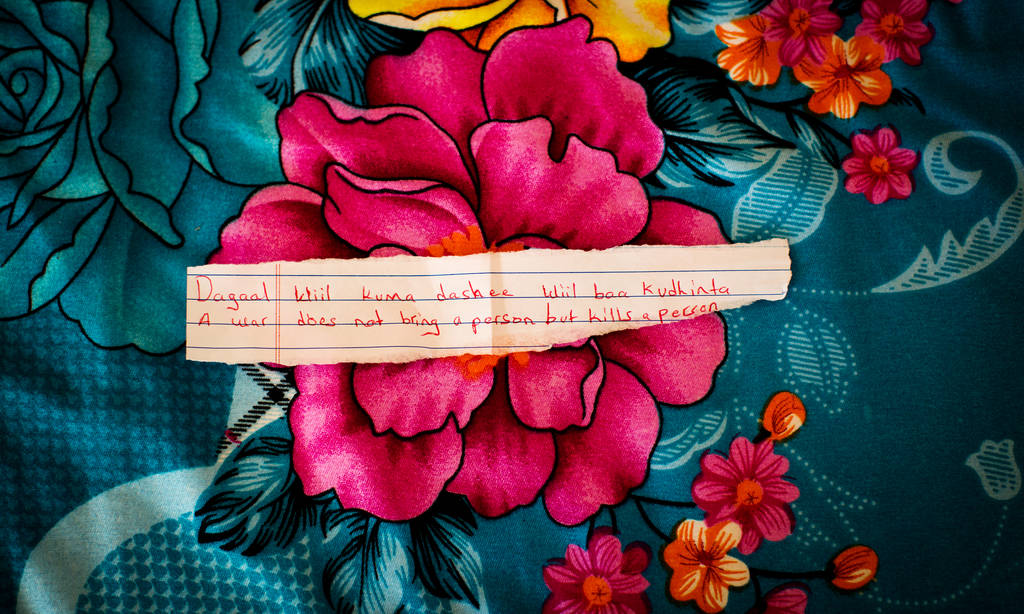 Dagaal wiil kuma dashee wiil baa kudhinta
A war does not bring a person but kills a person